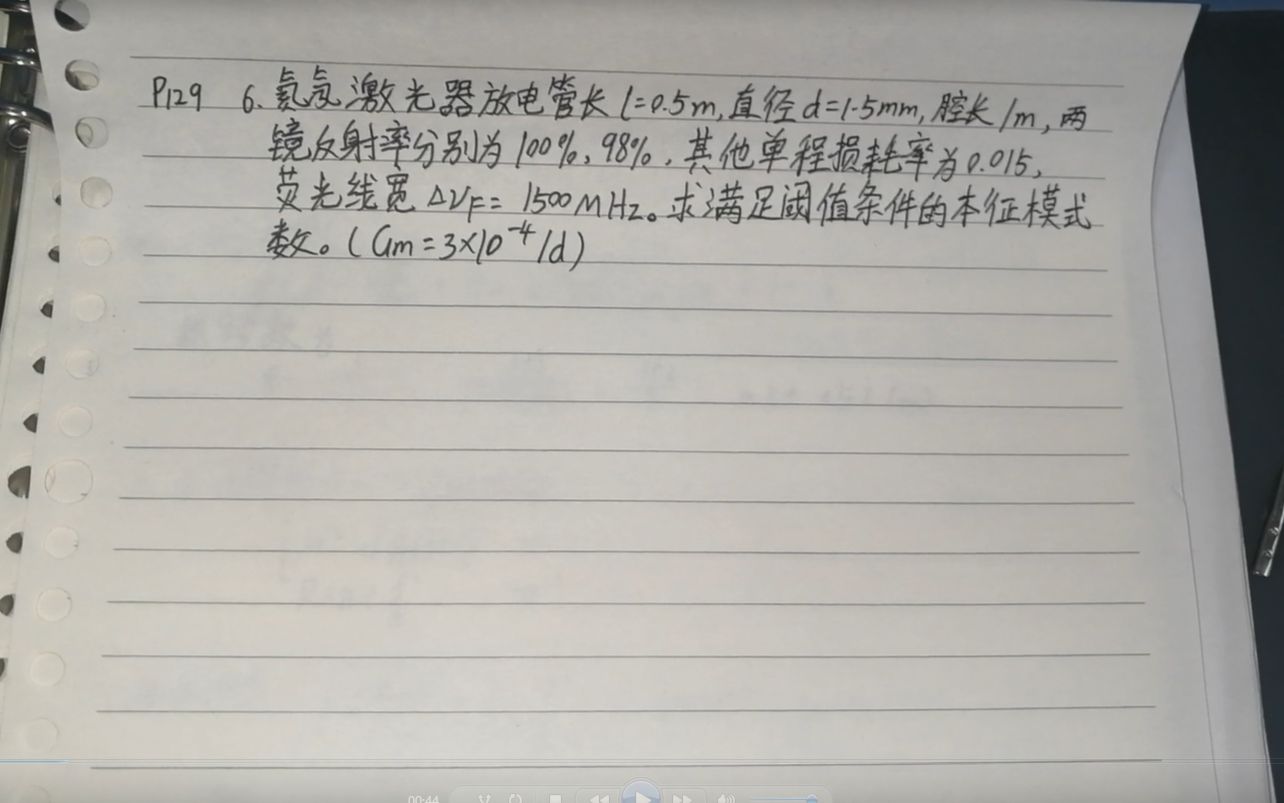 P129 6. 氦氖激光器放电管长 l=0.5m, 直径 d=1.5mm, 腔长 1m, 两
镜反射率分别为 100%, 98%, 其他单程损耗率为 0.015,
荧光线宽 ΔνF = 1500MHz。求满足阈值条件的本征模式
数。(Gm = 3×10⁻⁴/d)
00:44